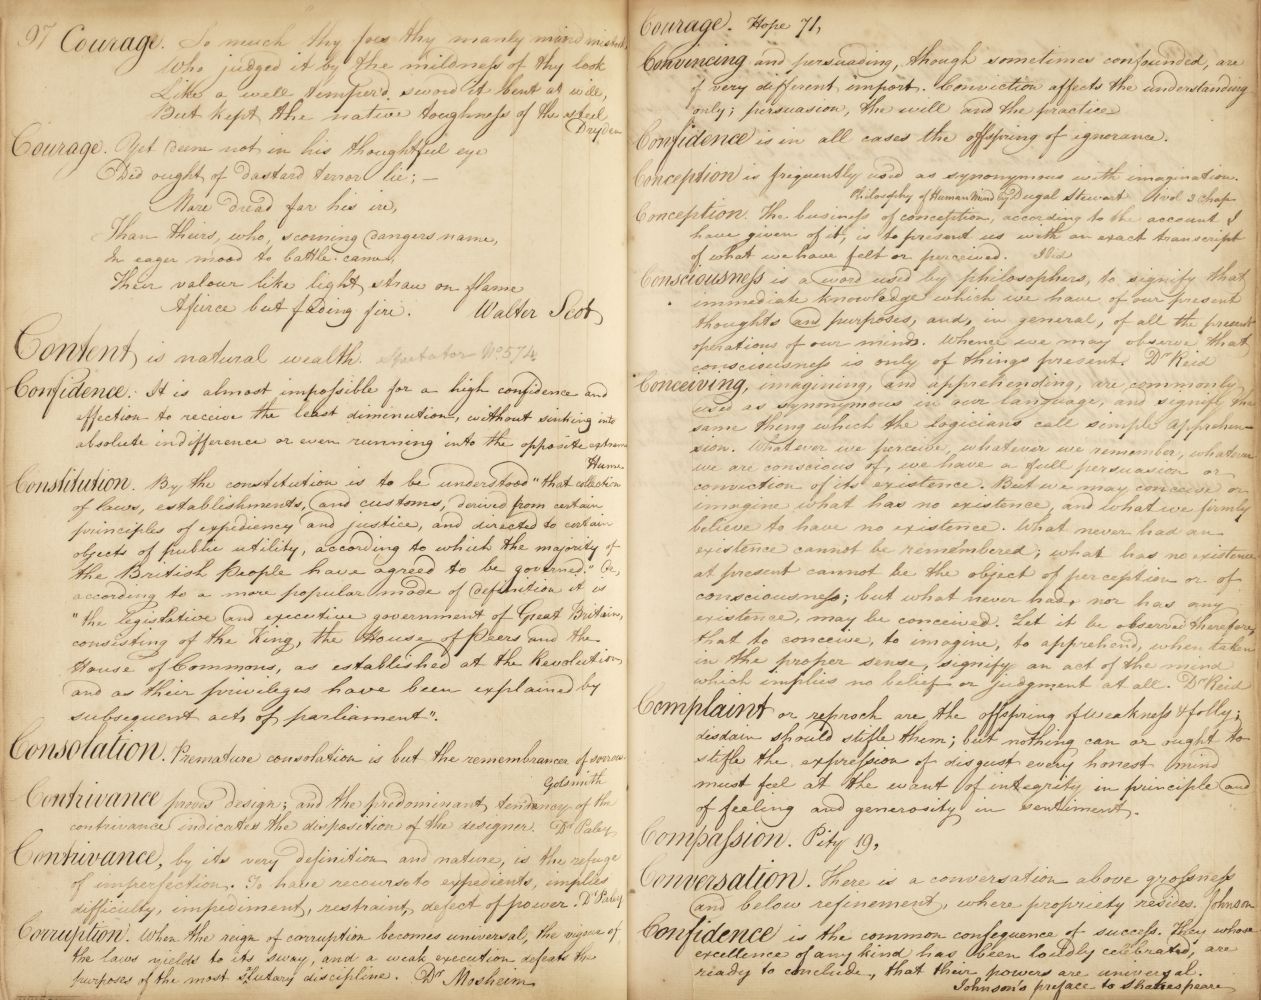 97 Courage. So much thy foes thy manly mind mistook
Who judged it by the mildness of thy look
Like a well temper'd sword it bent at will,
But kept the native toughness of the steel
Dryden
Courage. Yet deem not in his thoughtful eye
Did ought of dastard terror lie; —
More dread far his ire,
Than theirs, who, scorning dangers name,
In eager mood to battle came,
Their valour like light straw on flame
A firce but fading fire. Walter Scot,
Content, is natural wealth. Spectator No 574
Confidence. It is almost impossible for a high confidence and
affection to receive the least diminution, without sinking into
absolute indifference or even running into the opposite extreme
Hume
Constitution. By the constitution is to be understood "that collection
of laws, establishments, and customs, derived from certain
principles of expediency and justice, and directed to certain
objects of public utility, according to which the majority of
the British People have agreed to be governed." Or,
according to a more popular mode of definition it is
"the legislative and executive government of Great Britain,
consisting of the King, the House of Peers and the
House of Commons, as established at the Revolution,
and as their privileges have been explained by
subsequent acts of parliament".
Consolation. Premature consolation is but the remembrancer of sorrow
Goldsmith
Contrivance proves design; and the predominant tendency of the
contrivance indicates the disposition of the designer. Dr Paley
Contrivance, by its very definition and nature, is the refuge
of imperfection. To have recourse to expedients, implies
difficulty, impediment, restraint, defect of power. Dr Paley
Corruption. When the reign of corruption becomes universal, the vigour of
the laws yields to its sway, and a weak execution defeats the
purposes of the most salutary discipline. Dr Mosheim
Courage. Hope 71,
Convincing and persuading, though sometimes confounded, are
of very different import. Conviction affects the understanding
only; persuasion, the will and the practice
Confidence is in all cases the offspring of ignorance.
Conception is frequently used as synonymous with imagination.
Philosophy of Human Mind by Dugal Stewart vol 3 chap
Conception. The business of conception, according to the account I
have given of it, is to present us with an exact transcript
of what we have felt or perceived. Ibid
Consciousness is a word used by philosophers, to signify that
immediate knowledge which we have of our present
thoughts and purposes, and, in general, of all the present
operations of our minds. Whence we may observe that
consciousness is only of things present. Dr Reid
Conceiving, imagining, and apprehending, are commonly
used as synonymous in our language, and signify the
same thing which the logicians call simple apprehen-
sion. Whatever we perceive, whatever we remember, whatever
we are conscious of, we have a full persuasion or
conviction of its existence. But we may conceive or
imagine what has no existence, and what we firmly
believe to have no existence. What never had an
existence cannot be remembered; what has no existence
at present cannot be the object of perception or of
consciousness; but what never had, nor has any
existence, may be conceived. Let it be observed therefore,
that to conceive, to imagine, to apprehend, when taken
in the proper sense, signify an act of the mind
which implies no belief or judgment at all. Dr Reid
Complaint or reproch are the offspring of weakness & folly;
disdain should stifle them; but nothing can or ought to
stifle the expression of disgust every honest mind
must feel at the want of integrity in principle and
of feeling and generosity in sentiment.
Compassion. Pity 19,
Conversation. There is a conversation above grossness
and below refinement, where propriety resides. Johnson
Confidence is the common consequence of success. They whose
excellence of any kind has been loudly celebrated, are
ready to conclude, that their powers are universal.
Johnson's preface to Shakespeare